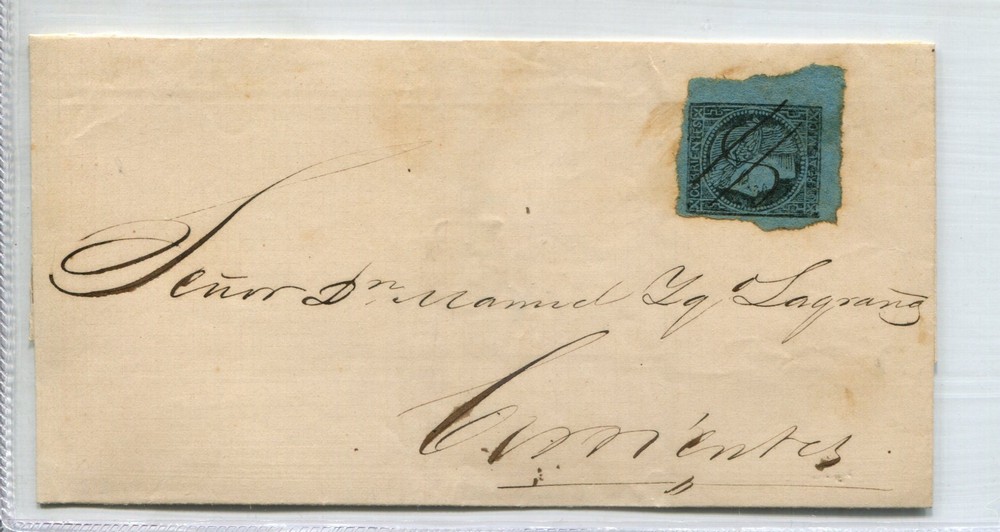 CORRIENTES
Señor Dn Manuel Ygo Lagraña
Corrientes